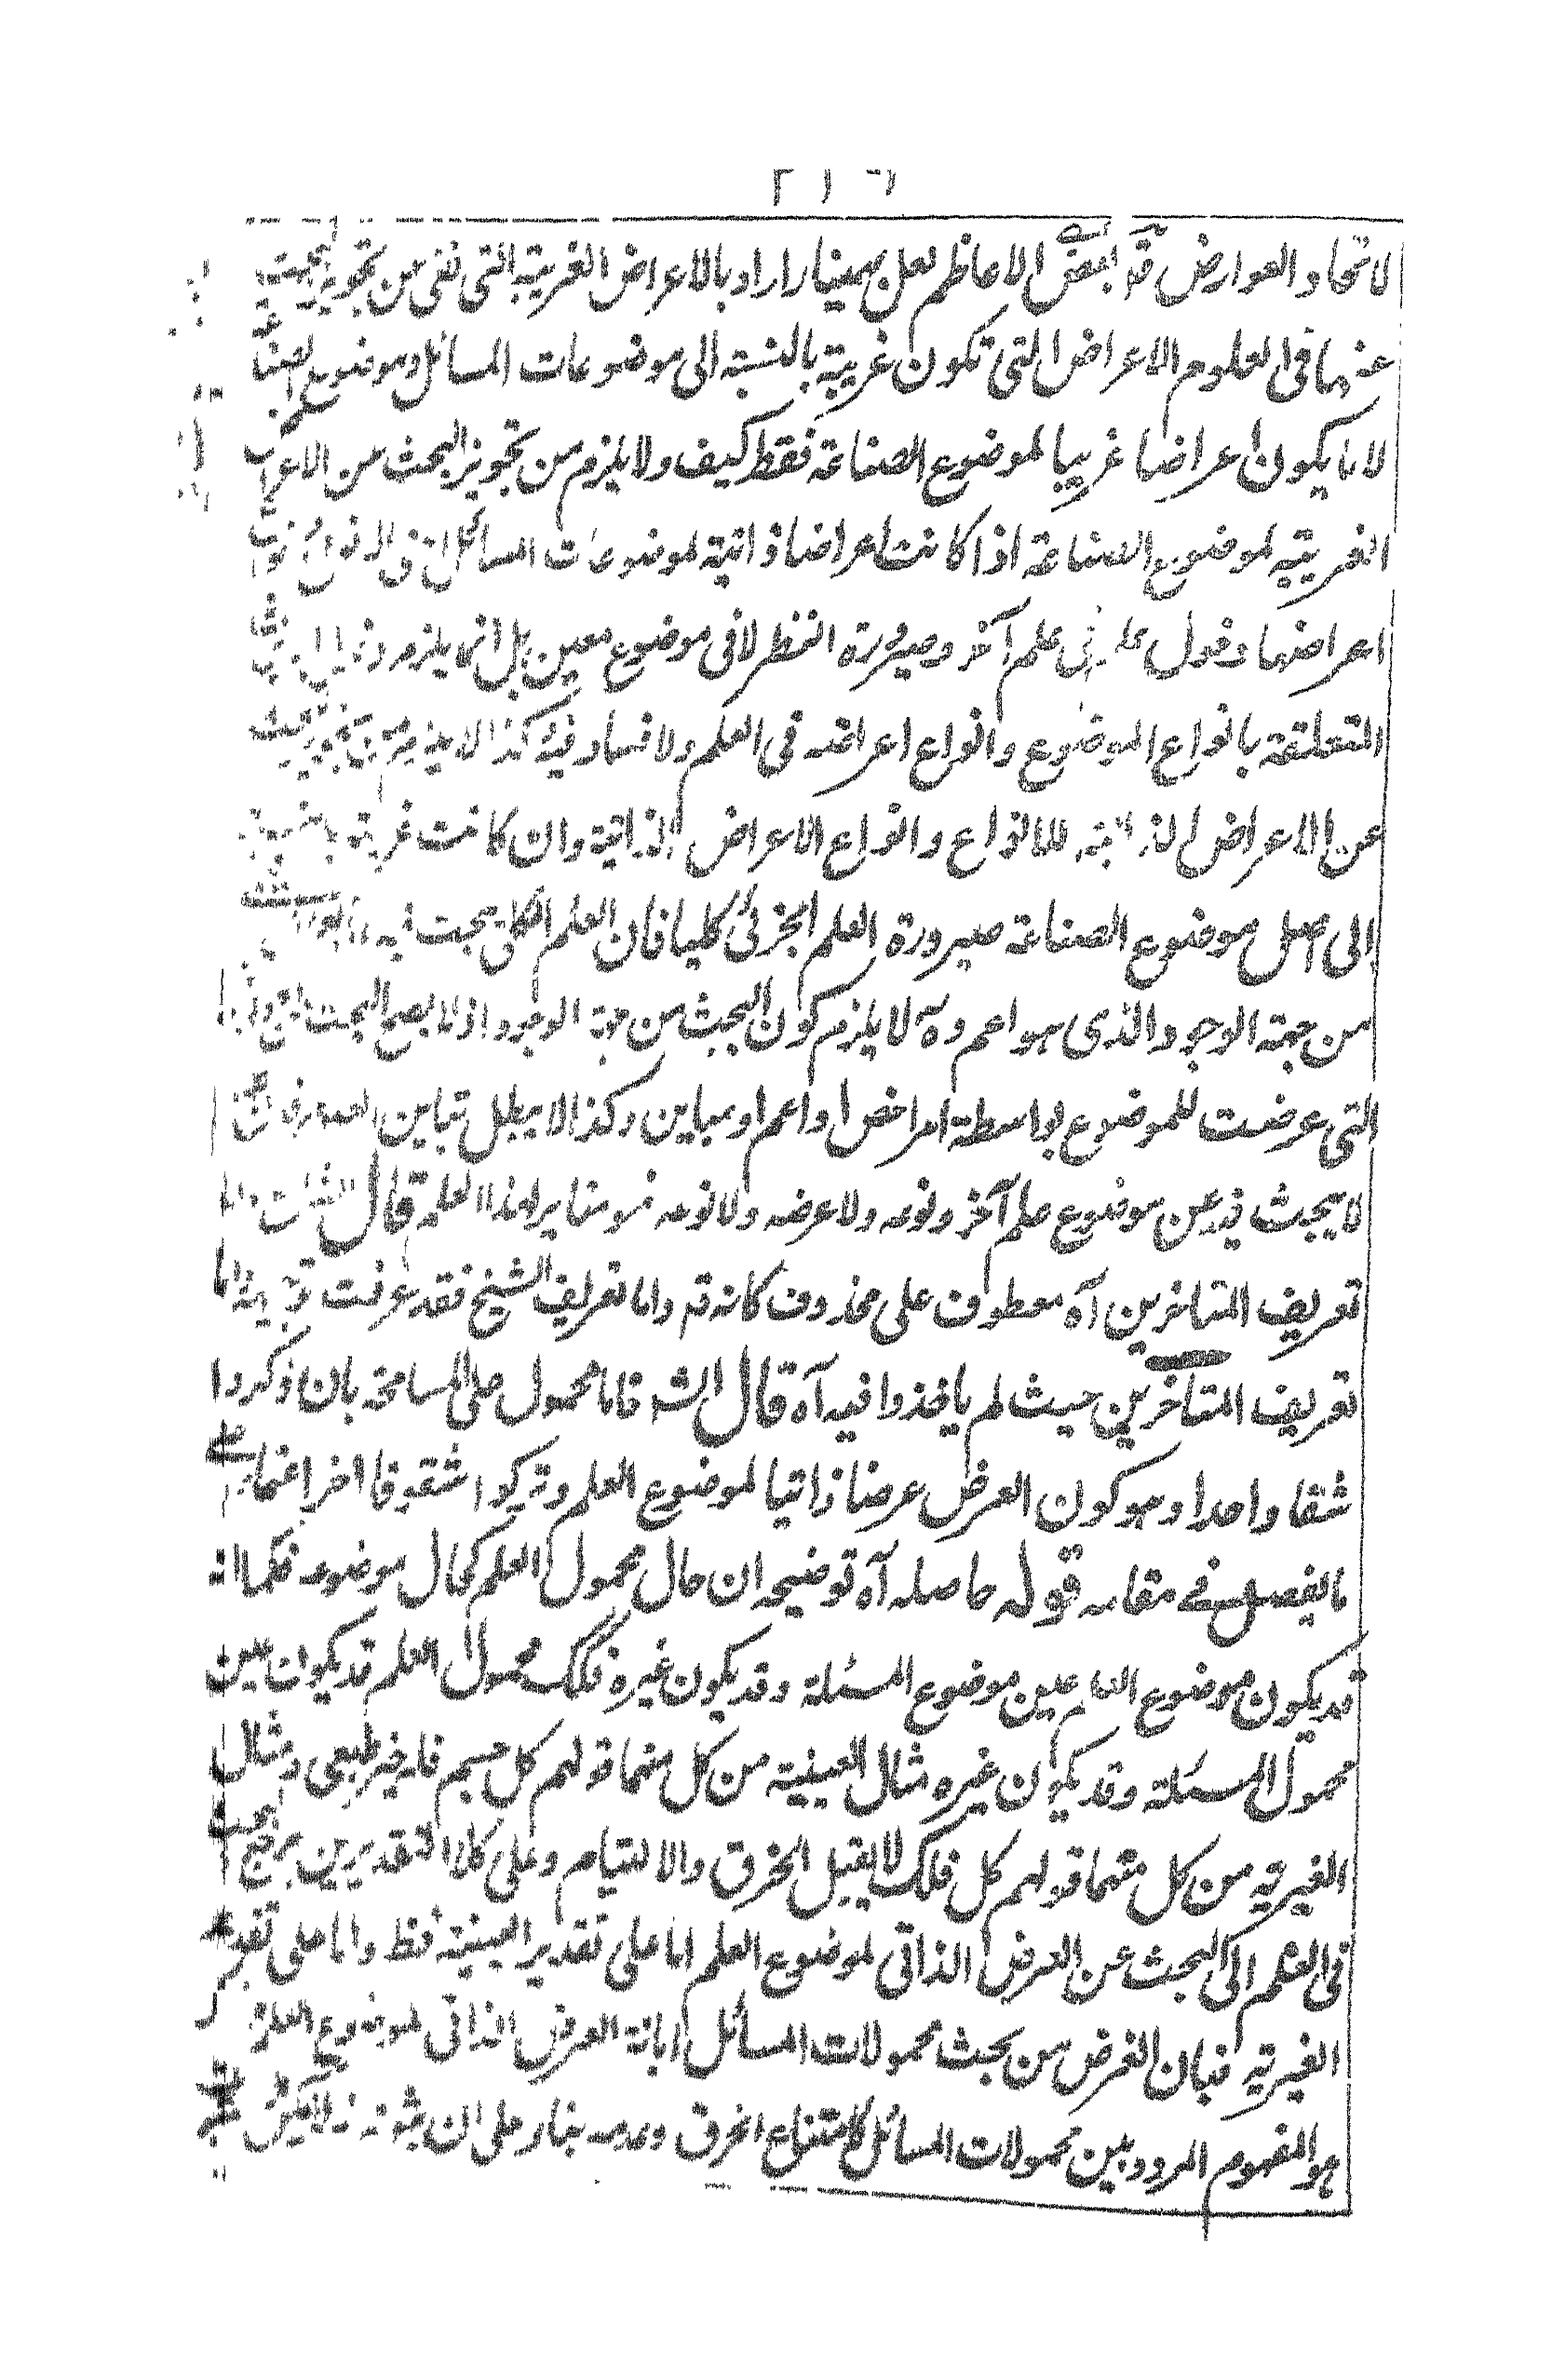 ٢١٦
لاتحاد العوارض قد بعض الاعاظم لعل بهمينار اراد بالاعراض الغريبة التى نفى من تجويز البحث
عنها فى العلوم الاعراض التى تكون غريبة بالنسبة الى موضوعات المسائل وموضوع الصناعة
لا ما يكون اعراضا غريبا لموضوع الصناعة فقط كيف ولا يلزم من تجويز البحث من الاعراض
الغريبة لموضوع الصناعة اذا كانت اعراضا ذاتية لموضوعات المسائل
اعراضها ودخول علم فى علم آخر وصيرورة النظر لا فى موضوع معين بل انما يلزم
المتعلقة بانواع الموضوع وانواع اعراضه فى العلم ولا فساد فيه كذا لا يلزم من تجويز البحث
عن الاعراض الذاتية للانواع وانواع الاعراض الذاتية وان كانت غريبة بالنسبة
الى اصل موضوع الصناعة صيرورة العلم الجزئى كليا فان العلم الكلى يبحث فيه
من جهة الوجود الذى هو اعم وه لا يلزم كون البحث من جهة الوجود اذ لا يصح البحث
التى عرضت للموضوع بواسطة امر اخص او اعم او مباين وكذا لا يبطل تباين العلوم فان
لا يبحث فيه عن موضوع علم آخر ونوعه ولا عرضه ولا نوعه فهو مغاير لهذا العلم قال الش
تعريف المتاخرين آه معطوف على محذوف كانه قد واما تعريف الشيخ فقد عرفت واما
تعريف المتاخرين حيث لم ياخذوا فيه آه قال الش فاما محمول على المسامحة بان ذكروا
شقا واحدا وهو كون العرض عرضا ذاتيا لموضوع العلم وتركوا شقوقا اخر اعتمادا على
ما يفصل فى مقامه قوله حاصله آه توضيحه ان حال محمول العلم كحال موضوعه فكما انه
قد يكون موضوع العلم عين موضوع المسئلة وقد يكون غيره فكك محمول العلم قد يكون عين
محمول المسئلة وقد يكون غيره مثال العينية من كل منهما قولهم كل جسم فله حيز طبعى ومثال
الغيرية من كل منهما قولهم كل فلك لا يقبل الخرق والالتيام وعلى كلا التقديرين يرجع البحث
فى العلم الى البحث عن العرض الذاتى لموضوع العلم اما على تقدير العينية فظ واما على تقدير
الغيرية فبان الغرض من بحث محمولات المسائل ابانة العرض الذاتى لموضوع العلم
هو المفهوم المردد بين محمولات المسائل كامتناع الخرق وعدمه بناء على ان